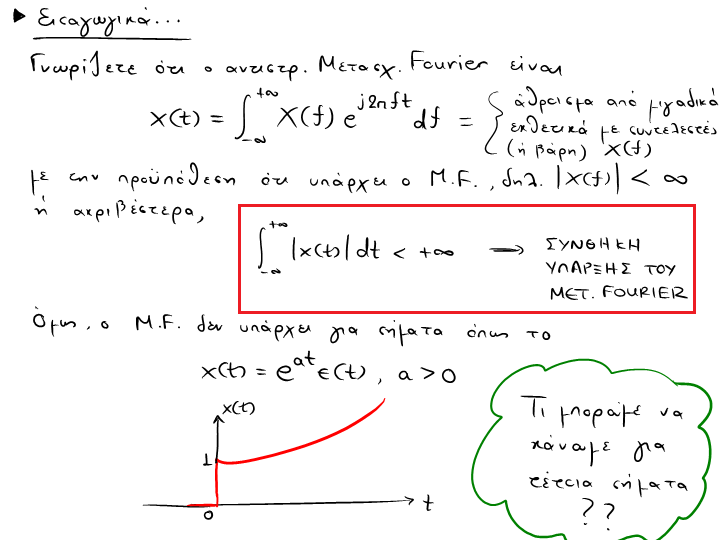 ▶ Εισαγωγικά...
Γνωρίζετε ότι ο αντιστρ. Μετασχ. Fourier είναι
x(t) = ∫_{-∞}^{+∞} X(f) e^{j2πft} df = { άθροισμα από μιγαδικά
εκθετικά με συντελεστές
(ή βάρη) X(f)
με την προϋπόθεση ότι υπάρχει ο Μ.F., δηλ. |X(f)| < ∞
ή ακριβέστερα,
∫_{-∞}^{+∞} |x(t)| dt < +∞ → ΣΥΝΘΗΚΗ
ΥΠΑΡΞΗΣ ΤΟΥ
ΜΕΤ. FOURIER
Όμως, ο Μ.F. δεν υπάρχει για σήματα όπως το
x(t) = e^{at} ε(t), a > 0
x(t)
1
0
t
Τι μποράμε να
κάνωμε για
τέτοια σήματα
??